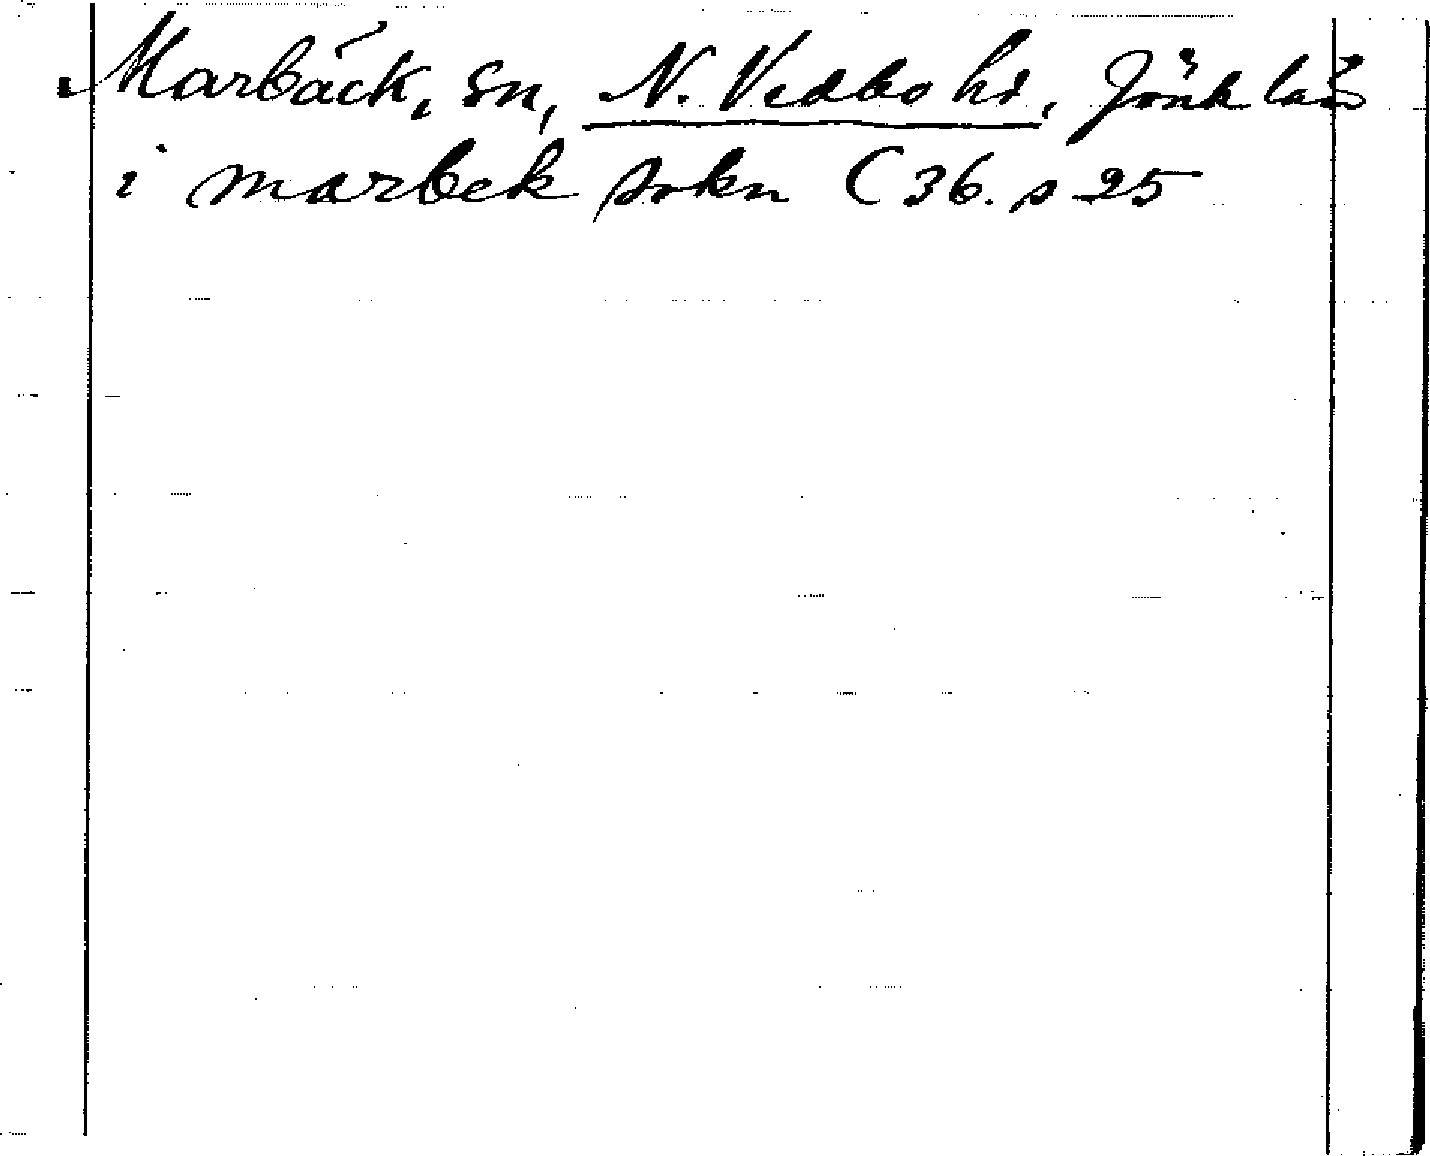 Marbäck, sn, N. Vedbo hd, Jönk län
i marbek sokn C 36. s 25